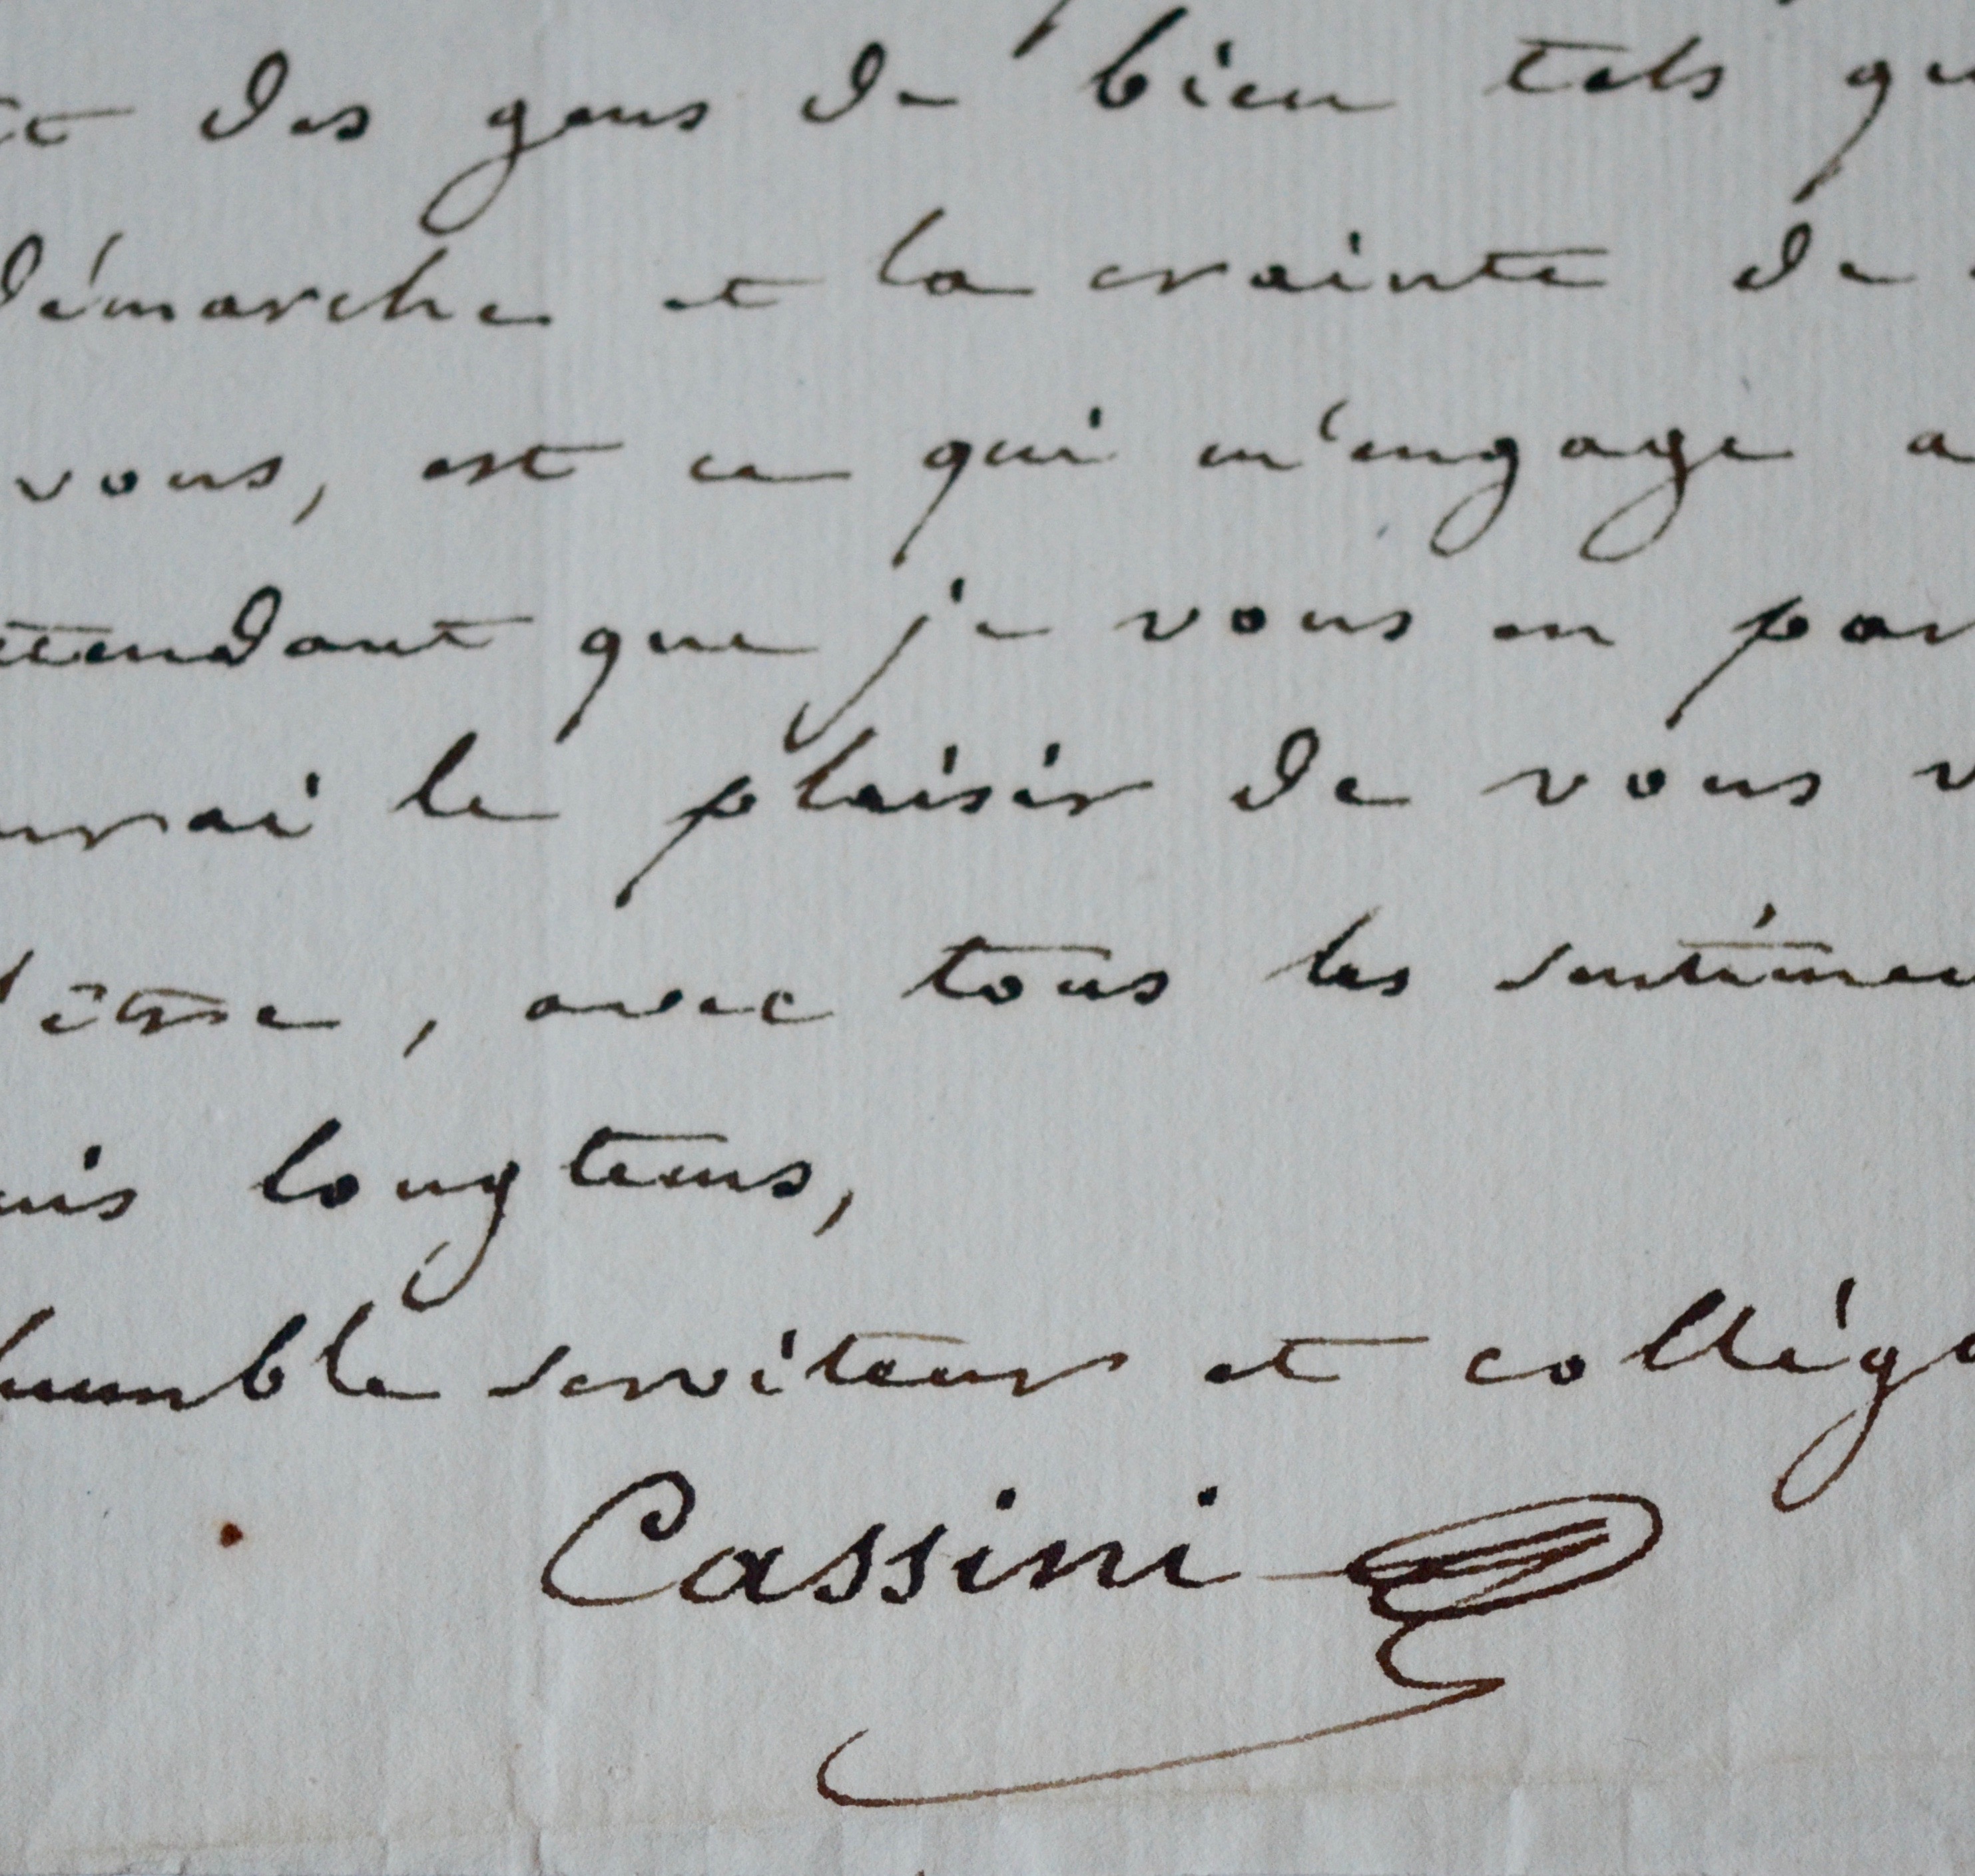 des gens de bien tels qu
démarche et la crainte de
vous, est ce qui m'engage a
ttendant que je vous en par
urai le plaisir de vous v
'être, avec tous les sentimen
uis longtems,
humble serviteur et collégu
Cassini